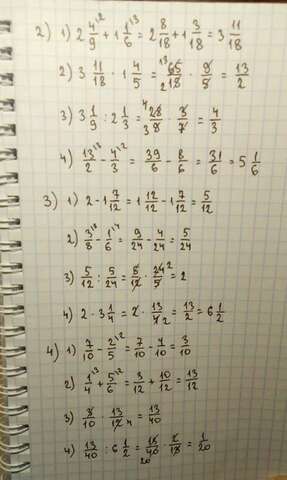 2) 1) 2 4/9 + 1 1/6 = 2 8/18 + 1 3/18 = 3 11/18
2) 3 11/18 · 1 4/5 = 65/18 · 9/5 = 13/2
3) 3 1/9 : 2 1/3 = 28/9 · 3/7 = 4/3
4) 13/2 - 4/3 = 39/6 - 8/6 = 31/6 = 5 1/6
3) 1) 2 - 1 7/12 = 1 12/12 - 1 7/12 = 5/12
2) 3/8 - 1/6 = 9/24 - 4/24 = 5/24
3) 5/12 : 5/24 = 5/12 · 24/5 = 2
4) 2 · 3 1/4 = 2 · 13/4 = 13/2 = 6 1/2
4) 1) 7/10 - 2/5 = 7/10 - 4/10 = 3/10
2) 1/4 + 5/6 = 3/12 + 10/12 = 13/12
3) 3/10 · 13/12 = 13/40
4) 13/40 : 6 1/2 = 13/40 · 2/13 = 1/20